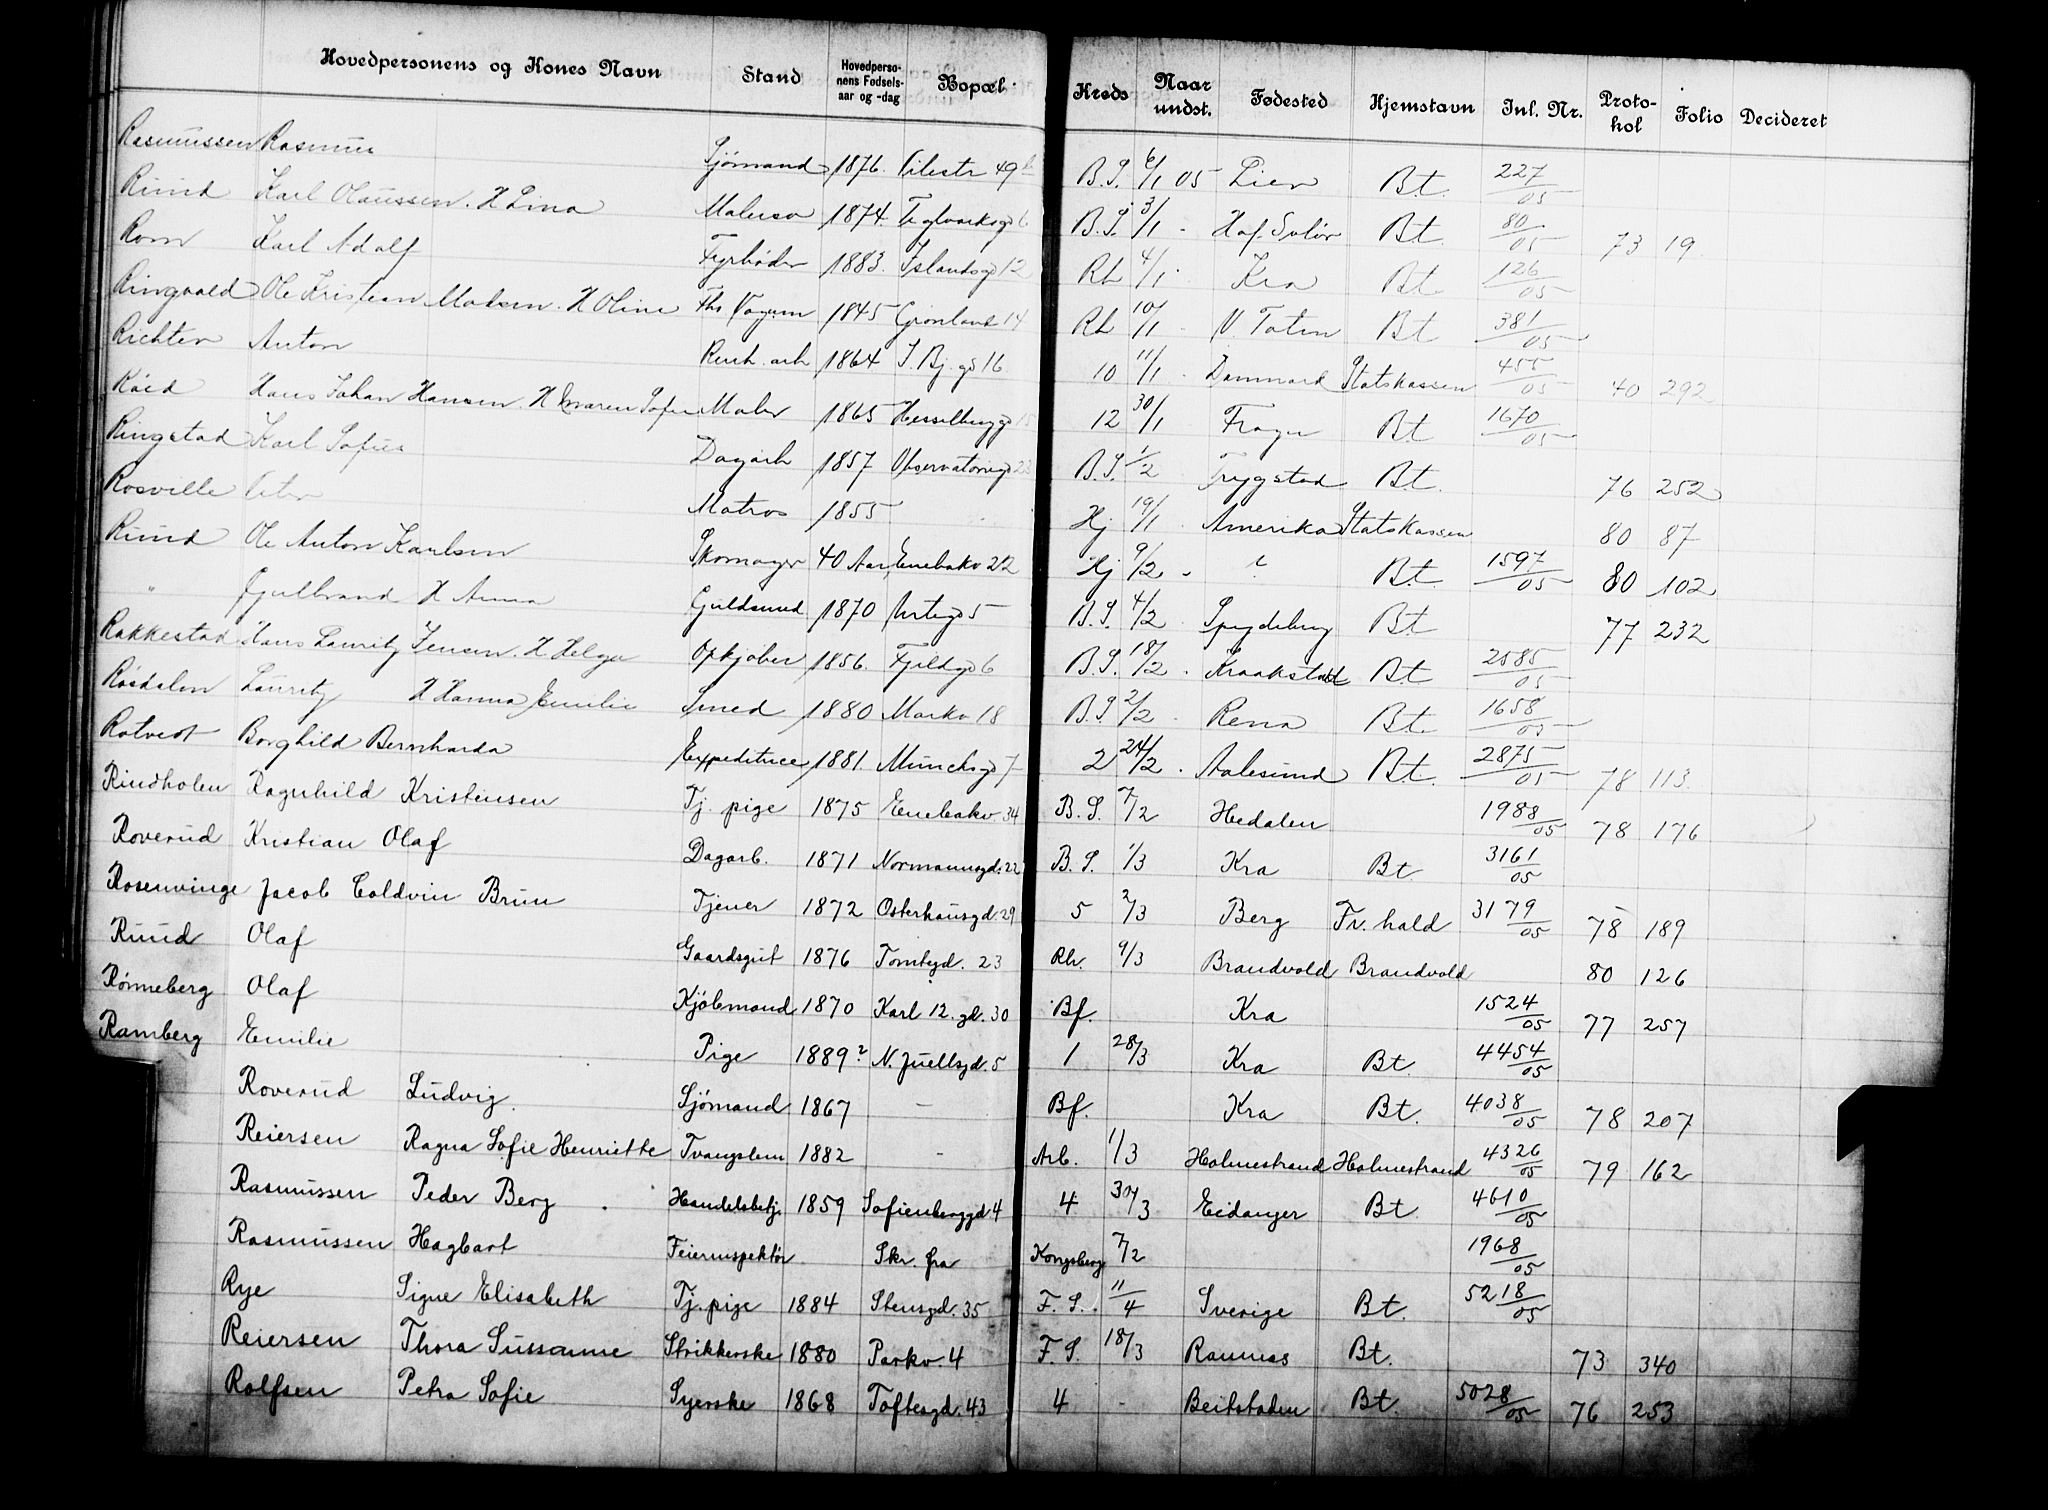 Hovedpersonens og Kones Navn Stand Hovedpersonens Fødselsaar og -dag Bopæl Kreds Naar undst. Fødested Hjemstavn Inl. Nr. Protokol Folio Decideret
Rasmussen Rasmus Sjømand 1876. Vilestr 49 B.S. 6/1 05 Lier Bt. 227/05
Ruud Karl Olaussen. H Lina Malersv 1874. Teglverksgd 6 B.S. 3/1 - Hof. Solør Bt. 80/05 73 19
Rom Karl Adolf Fyrbøder 1883. Islandsgd 12 Rh 4/1 - Kra Bt. 126/05
Ringvold Ole Kristian Madsen. H Oline 1845 Grønland 14 Rh 10/1 - V. Toten Bt 381/05
Richter Anton Renh. arb 1864 S. Bj. gd 16 10 11/1 - Danmark Statskassen 455/05 40 292
Røed Hans Johan Hansen. H Maren Sofie Maler 1865 Hesselbergg 15 12 30/1 Frogn Bt 1670/05
Ringstad Karl Sofus Dagarb 1857 Observatoriegd 23 B.S. 1/2 Trygstad Bt. 76 252
Rosville Peter Matros 1855 Hj 19/1 - Amerika Statskassen 80 87
Ruud Ole Anton Karlsen Skomager 40 Aar Enebakv 22 Hj 9/2 - ? Bt. 1597/05 80 102
" Gulbrand H Anna Guldsmed 1870 Urtegd 5 B.S. 4/2 Spydeberg Bt 77 232
Rakkestad Hans Lauritz Jensen. H Helga Opkjøber 1856. Fjeldgd 6 B.S. 18/2 - Kraakstad Bt 2585/05
Røsdalen Lauritz H Hanna Emilie Smed 1880 Markv 18 B.S 2/2 - Rena Bt. 1658/05
Rotvedt Borghild Bernharda Expeditrice 1881. Munchsgd 7 2 24/2 - Aalesund Bt. 2875/05 78 113.
Rindholen Ragnhild Kristensen Tj. pige 1875 Enebakv. 34 B.S. 7/2 Hedalen 1988/05 78 176
Roverud Kristian Olaf Dagarb. 1871 Normannsgd. 22 B.S. 1/3 Kra Bt. 3161/05
Rosenvinge Jacob Coldvin Brun Tjener 1872 Osterhausgd. 29 5 2/3 Berg Fr. hald 3179/05 78 189
Ruud Olaf Gaardsgut 1876 Tomtegd. 23 Rh. 9/3 Brandvold Brandvold 80 126
Rønneberg Olaf Kjøbmand 1870 Karl 12. gd. 30 Bf. Kra 1524/05 77 257
Ramberg Emilie Pige 1889? N. Juellsgd. 5 1 28/3 Kra Bt. 4454/05
Roverud Ludvig. Sjømand 1867 - Bf. Kra Bt. 4038/05 78 207
Reiersen Ragna Sofie Henriette Tvangslem 1882 - Arb. 1/3 Holmestrand Holmestrand 4326/05 79 162
Rasmussen Peder Berg Handelsbetj. 1859 Sofienberggd. 4 4 30/3 Eidanger Bt. 4610/05
Rasmussen Hagbart Feierinspektør Skr. fra Kongsberg 7/2 1968/05
Rye Signe Elisabeth Tj. pige 1884 Stensgd. 35 F.S. 11/4 Sverige Bt. 5218/05
Reiersen Thora Sussanne Strikkerske 1880 Parkv. 4 F.S. 18/3 Ramnes Bt. 73 340
Rolfsen Petra Sofie Syerske 1868 Toftesgd. 43 4 - Beitstaden Bt. 5028/05 76 253